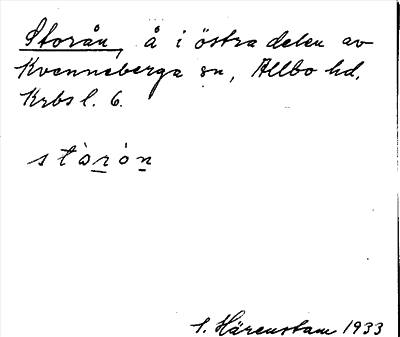 Storån, å i östra delen av
Kvenneberga sn, Allbo hd.
Krbs l. 6.
stòrón
S. Härenstam 1933